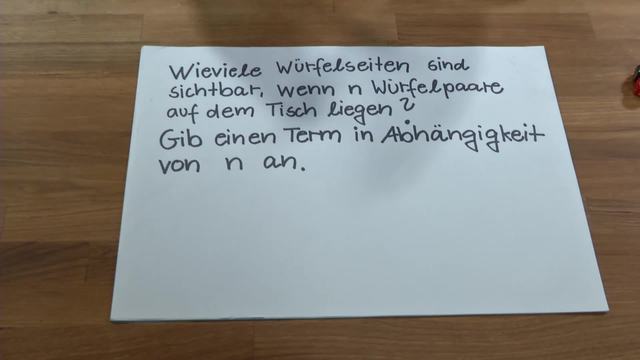 Wieviele Würfelseiten sind
sichtbar, wenn n Würfelpaare
auf dem Tisch liegen?
Gib einen Term in Abhängigkeit
von n an.